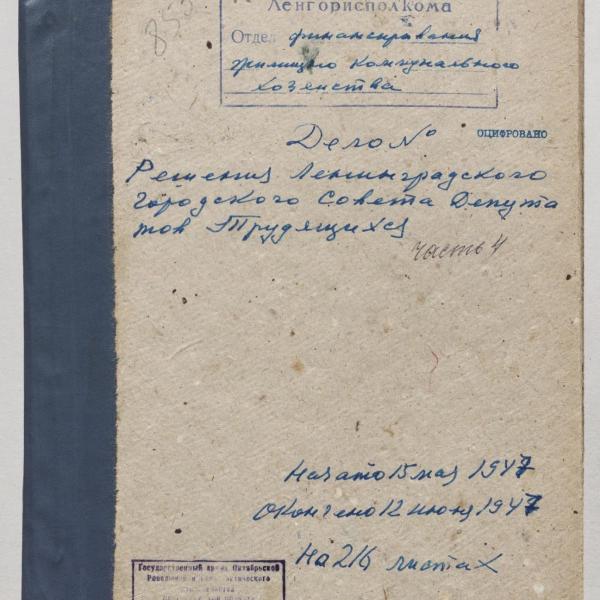 853
Ленгорисполкома
Отдел финансирования
жилищно коммунального
хозяйства
ОЦИФРОВАНО
Дело №
Решения Ленинградского
Городского Совета Депута
тов Трудящихся
часть 4
Начато 15 мая 1947
Окончено 12 июня 1947
На 216 листах
Государственный архив Октябрьской
Революции и